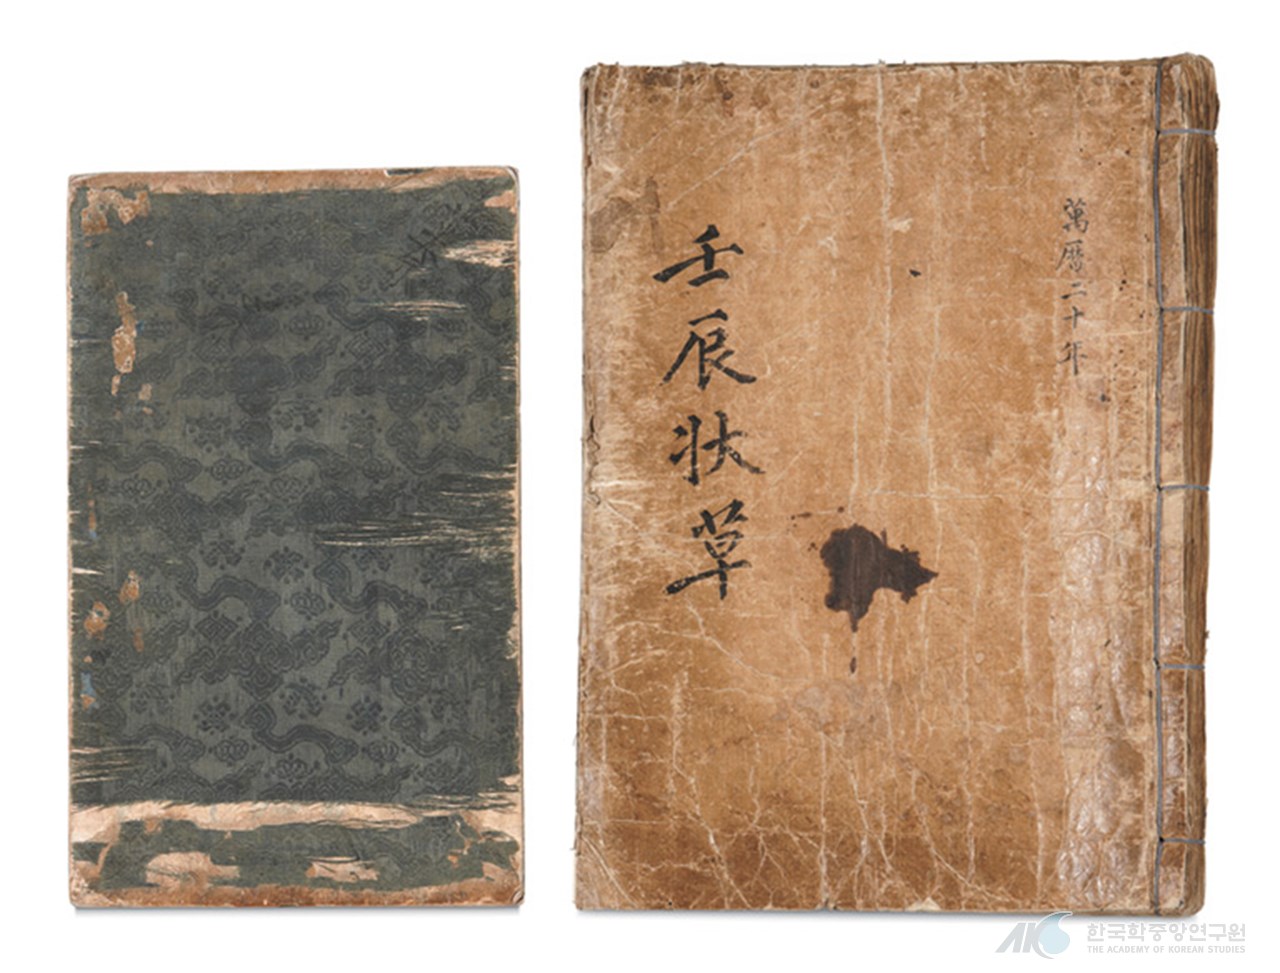 萬曆二十年
壬辰狀草
AKS 한국학중앙연구원
THE ACADEMY OF KOREAN STUDIES